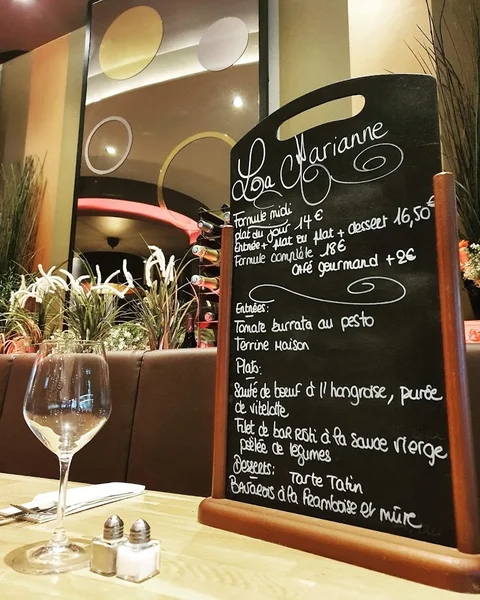 La Marianne
Formule midi
plat du jour 14€
Entrée + plat ou plat + dessert 16,50€
Formule complète 18€
Café gourmand +2€
Entrées:
Tomate burrata au pesto
Terrine maison
Plats:
Sauté de boeuf à l'hongroise, purée
de vitelotte
Filet de bar rôti à la sauce vierge
poêlée de légumes
Desserts: Tarte Tatin
Bavarois à la framboise et mûre